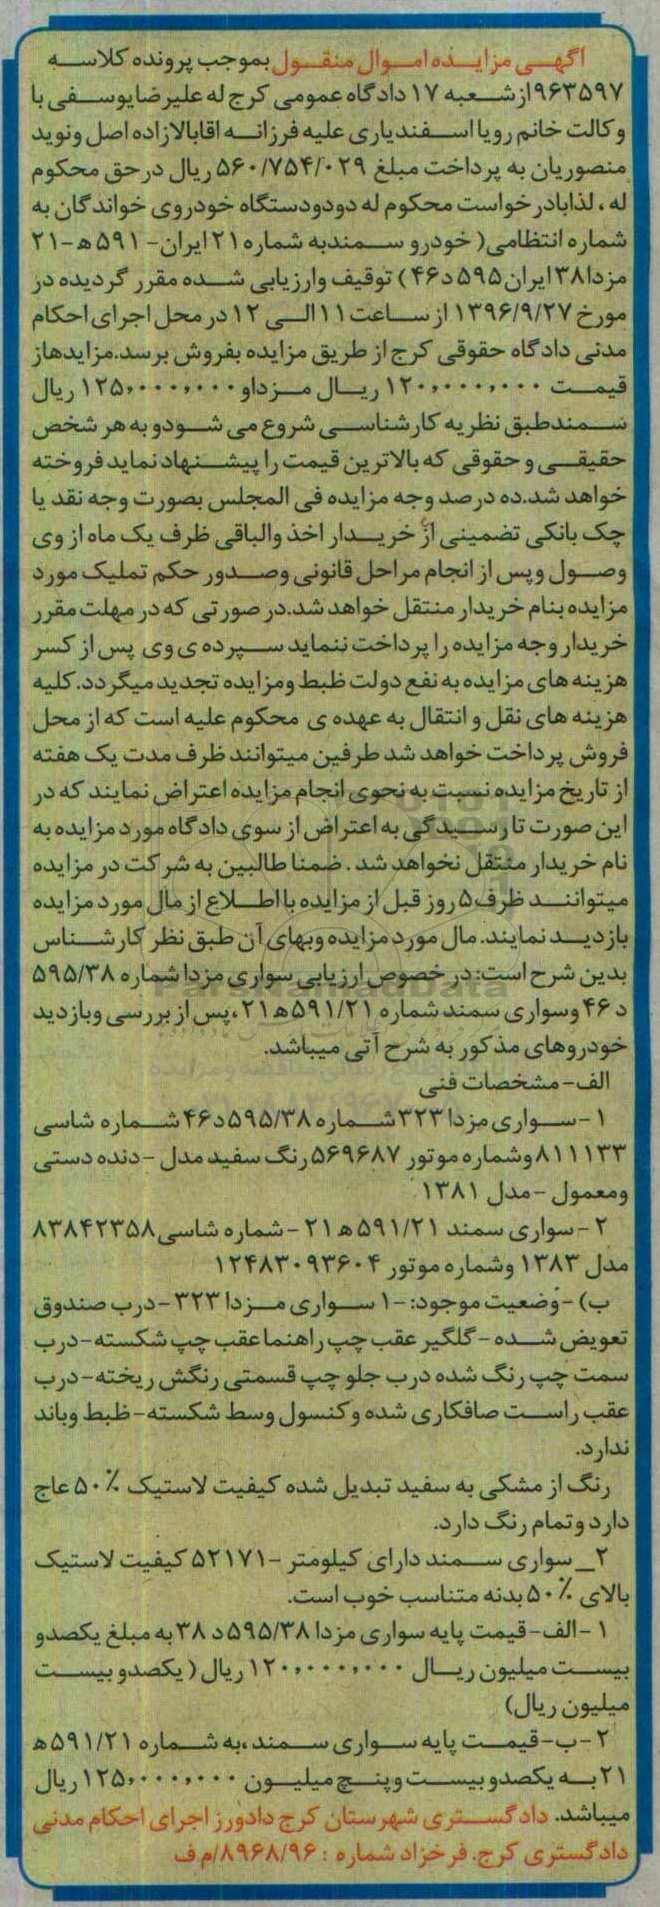 آگهـی مزایـده امـوال منقـول بموجب پرونده کلاسـه
۹۶۳۵۹۷ از شـعبه ۱۷ دادگاه عمومی کرج له علیرضا یوسـفی با
وکالت خانم رویا اسـفندیاری علیه فرزانـه اقابالازاده اصل ونوید
منصوریان به پرداخت مبلغ ۵۶۰/۷۵۴/۰۲۹ ریال درحق محکوم
له ، لذابادرخواست محکوم له دودودستگاه خودروی خواندگان به
شماره انتظامی( خودرو سـمندبه شماره ۲۱ ایران- ۵۹۱ ه-۲۱
مزدا۳۸ ایران ۵۹۵ د۴۶ ) توقیف وارزیابی شـده مقرر گردیده در
مورخ ۱۳۹۶/۹/۲۷ از سـاعت ۱۱ الـی ۱۲ در محل اجرای احکام
مدنی دادگاه حقوقی کرج از طریق مزایده بفروش برسد.مزایدهاز
قیمـت ۱۲۰,۰۰۰,۰۰۰ ریـال مـزداو ۱۲۵,۰۰۰,۰۰۰ ریال
سـمندطبق نظریه کارشناسـی شروع می شـودو به هر شخص
حقیقـی و حقوقی که بالاترین قیمت را پیشـنهاد نماید فروخته
خواهد شد.ده درصد وجه مزایده فی المجلس بصورت وجه نقد یا
چک بانکی تضمینی از خریـدار اخذ والباقی ظرف یک ماه از وی
وصـول وپس از انجام مراحل قانونی وصـدور حکم تملیک مورد
مزایده بنام خریدار منتقل خواهد شد.در صورتی که در مهلت مقرر
خریدار وجه مزایده را پرداخت ننماید سـپرده ی وی پس از کسر
هزینه های مزایده به نفع دولت ظبط ومزایده تجدید میگردد.کلیه
هزینه های نقل و انتقال به عهده ی محکوم علیه است که از محل
فروش پرداخت خواهد شد طرفین میتوانند ظرف مدت یک هفته
از تاریخ مزایده نسبت به نحوی انجام مزایده اعتراض نمایند که در
این صورت تا رسـیدگی به اعتراض از سوی دادگاه مورد مزایده به
نام خریدار منتقل نخواهد شد . ضمنا طالبین به شرکت در مزایده
میتواننـد ظرف۵ روز قبل از مزایده با اطـلاع از مال مورد مزایده
بازدیـد نمایند. مال مورد مزایده وبهای آن طبق نظر کارشـناس
بدین شرح است: در خصوص ارزیابی سواری مزدا شماره ۵۹۵/۳۸
د ۴۶ وسواری سمند شماره ۵۹۱/۲۱ه ۲۱ ،پس از بررسی وبازدید
خودروهای مذکور به شرح آتی میباشد.
الف- مشخصات فنی
۱ -سـواری مزدا ۳۲۳ شـماره ۵۹۵/۳۸د ۴۶ شـماره شاسی
۸۱۱۱۳۳ وشماره موتور ۵۶۹۶۸۷ رنگ سفید مدل -دنده دستی
ومعمول -مدل ۱۳۸۱
۲ -سواری سمند ۵۹۱/۲۱ ه ۲۱ -شماره شاسی ۸۳۸۴۲۳۵۸
مدل ۱۳۸۳ وشماره موتور ۱۲۴۸۳۰۹۳۶۰۴
ب) -وضعیت موجود: -۱ سـواری مـزدا ۳۲۳ -درب صندوق
تعویض شـده -گلگیر عقب چپ راهنما عقب چپ شکسته-درب
سمت چپ رنگ شده درب جلو چپ قسمتی رنگش ریخته-درب
عقب راسـت صافکاری شده وکنسول وسط شکسته-ظبط وباند
ندارد.
رنگ از مشکی به سفید تبدیل شده کیفیت لاستیک ٪۵۰ عاج
دارد وتمام رنگ دارد.
۲_ سواری سـمند دارای کیلومتر -۵۲۱۷۱ کیفیت لاستیک
بالای ٪۵۰ بدنه متناسب خوب است.
۱ -الف-قیمت پایه سواری مزدا ۵۹۵/۳۸ د ۳۸ به مبلغ یکصدو
بیسـت میلیون ریـال ۱۲۰,۰۰۰,۰۰۰ ریال ( یکصدو بیسـت
میلیون ریال)
۲ -ب-قیمـت پایه سـواری سـمند ،به شـماره ۵۹۱/۲۱ ه
۲۱ بـه یکصدو بیسـت وپنـچ میلیـون ۱۲۵,۰۰۰,۰۰۰ ریال
میباشد. دادگسـتری شهرستان کرج دادورز اجرای احکام مدنی
دادگستری کرج. فرخزاد شماره : ۸۹۶۸/۹۶/م ف